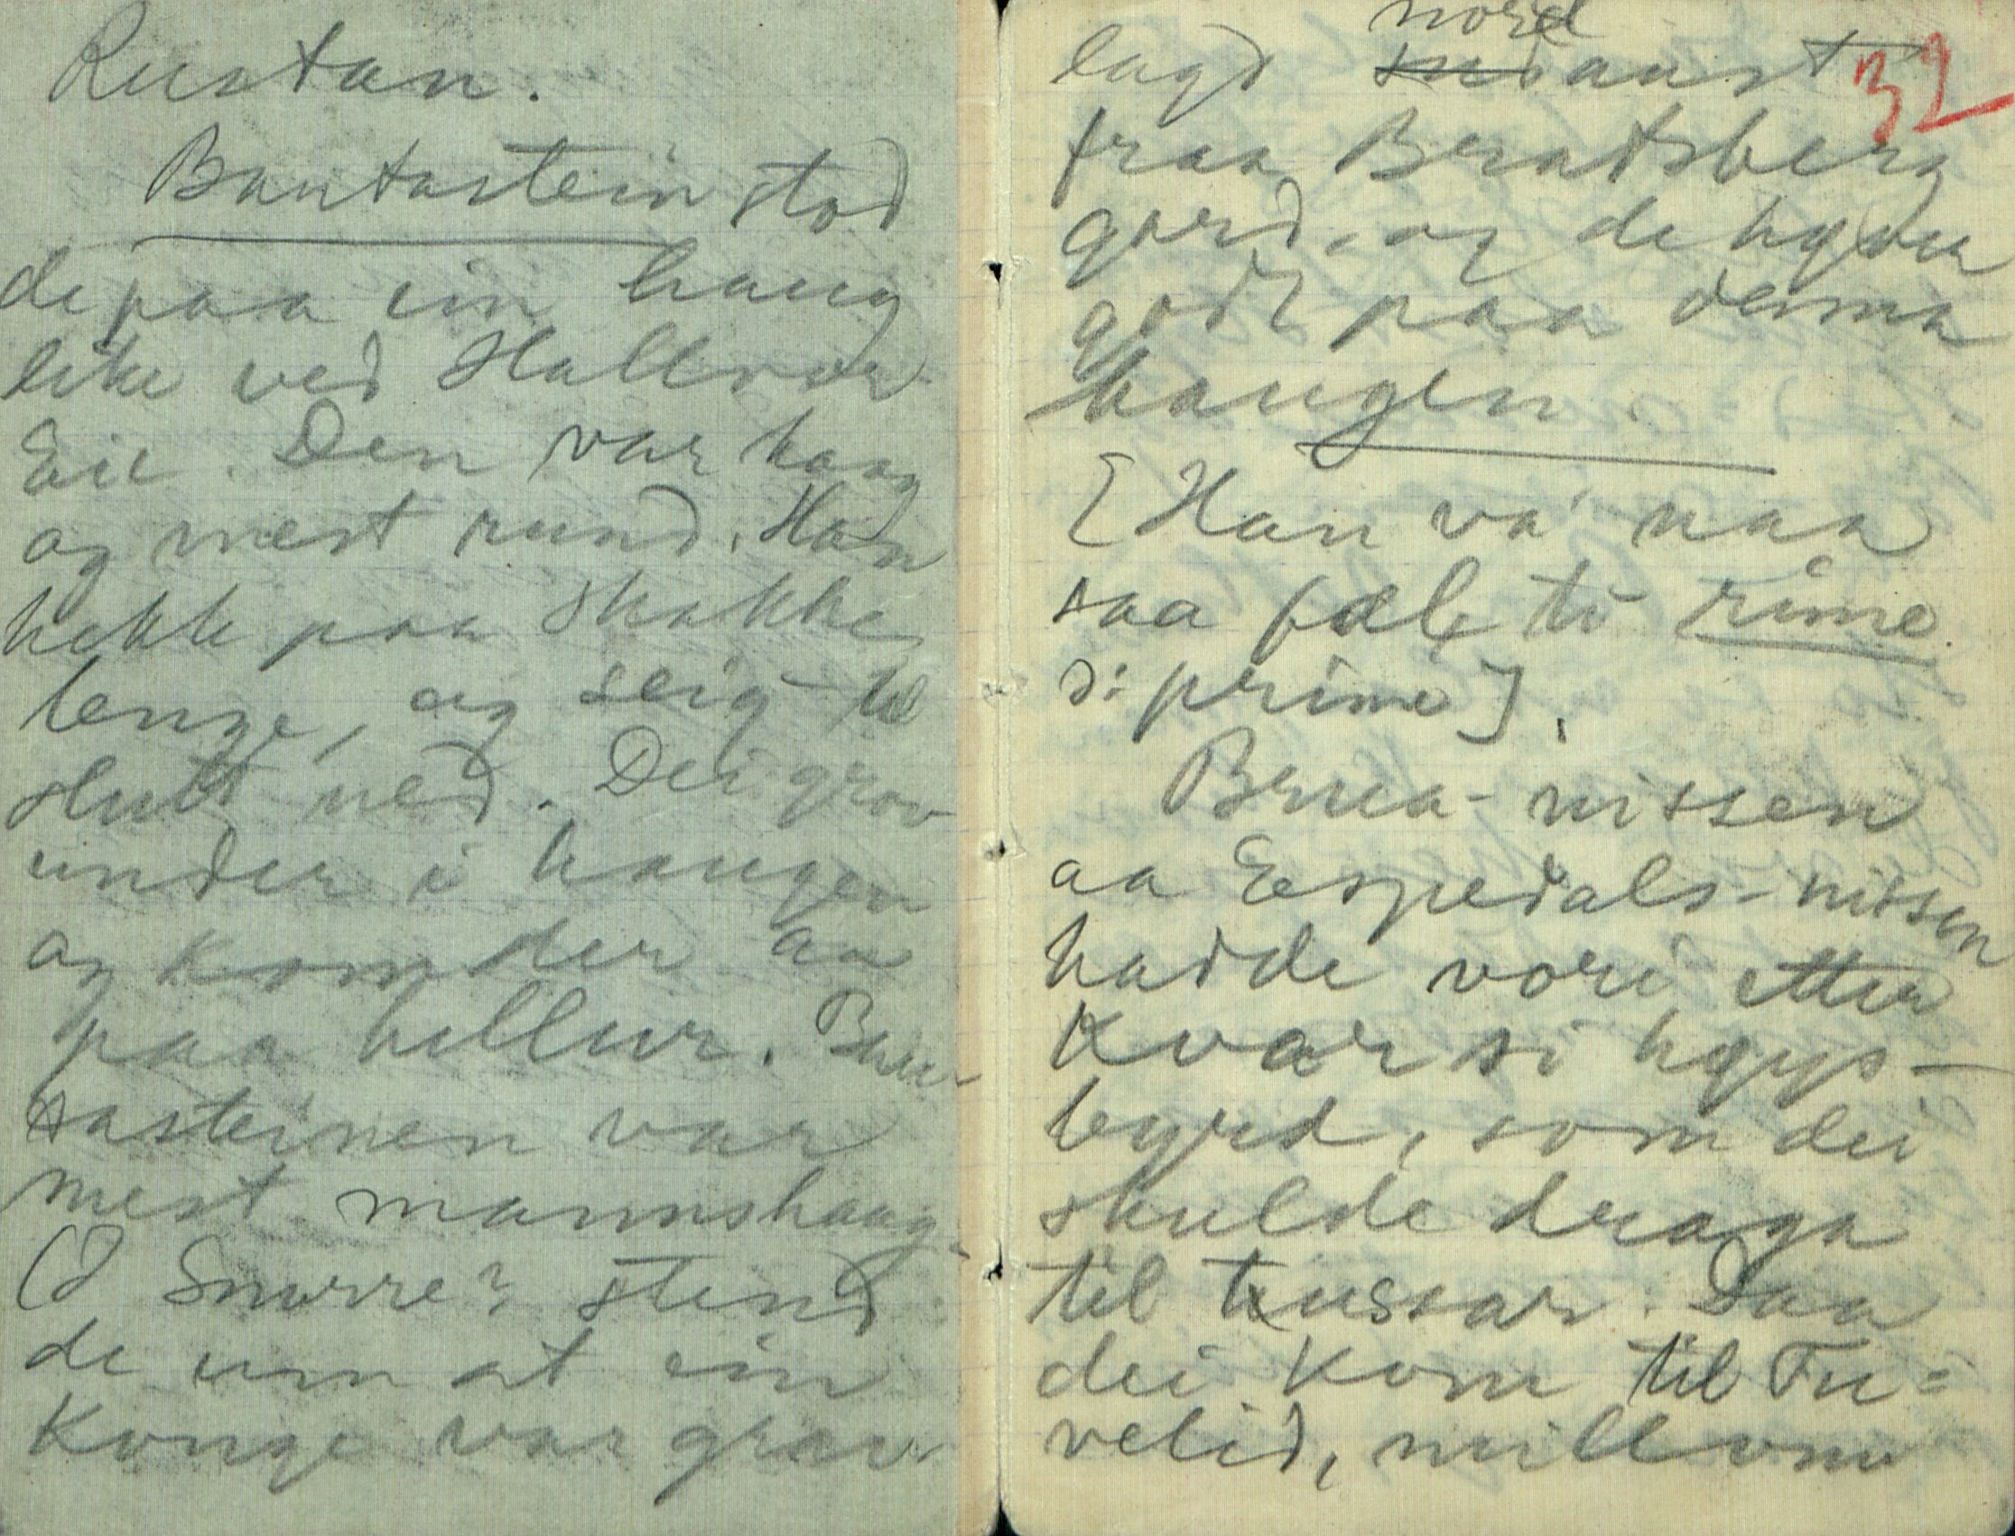 Rustan.
Bautastein stod
de paa ein haug
like ved Hallvor
Eie. Den var haag
og mest rund. Han
hekk paa skakke
lenge, og seig til
slutt ned. Dei grov
under i haugen
og kom der aa
paa hellur. Bau-
tasteinen var
mest mannshaag
(I Snorre? stend
de um at ein
Konge var grav-
lagd nord
sudaust 32
fraa Bratsberg
gard, og de høver
godt paa denna
haugen.
[Han va' naa
saa fæl te rime
ɔ: prime].
Brua-nissen
aa Espedals-nissen
hadde vori etter
Kvar si høys-
byrd, som dei
skulde draga
til tussar. Daa
dei kom til Tu=
velid, millom